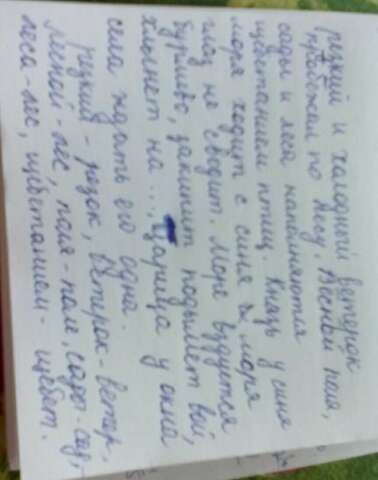 резкий и холодный ветерок
пробежал по лесу. Весной поля,
сады и леса наполняются
щебетанием птиц. Князь у синя
моря ходит с синя моря
глаз не сводит. Море вздуется
бурливо, закипит подымет вой,
хлынет на... Царица у окна
села ждать его одна.
резкий - резок, ветерок - ветер,
лесной - лес, поля - поле, сады - сад,
леса - лес, щебетанием - щебет.